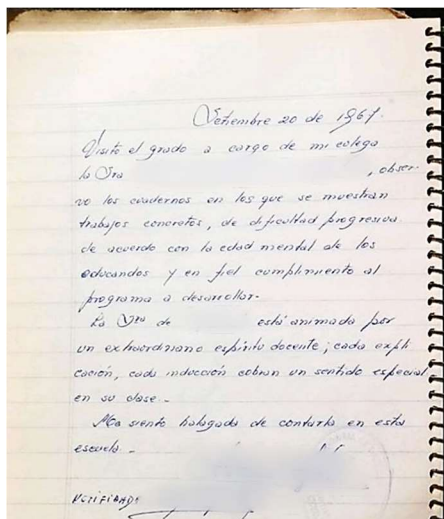 Setiembre 20 de 1967.
Visito el grado a cargo de mi colega
la Sra , obser-
vo los cuadernos en los que se muestran
trabajos concretos, de dificultad progresiva
de acuerdo con la edad mental de los
educandos y en fiel cumplimiento al
programa a desarrollar.
La Sra de está animada por
un extraordinario espíritu docente; cada expli
cación, cada inducción cobran un sentido especial
en su clase.
Me siento halagada de contarla en esta
escuela.